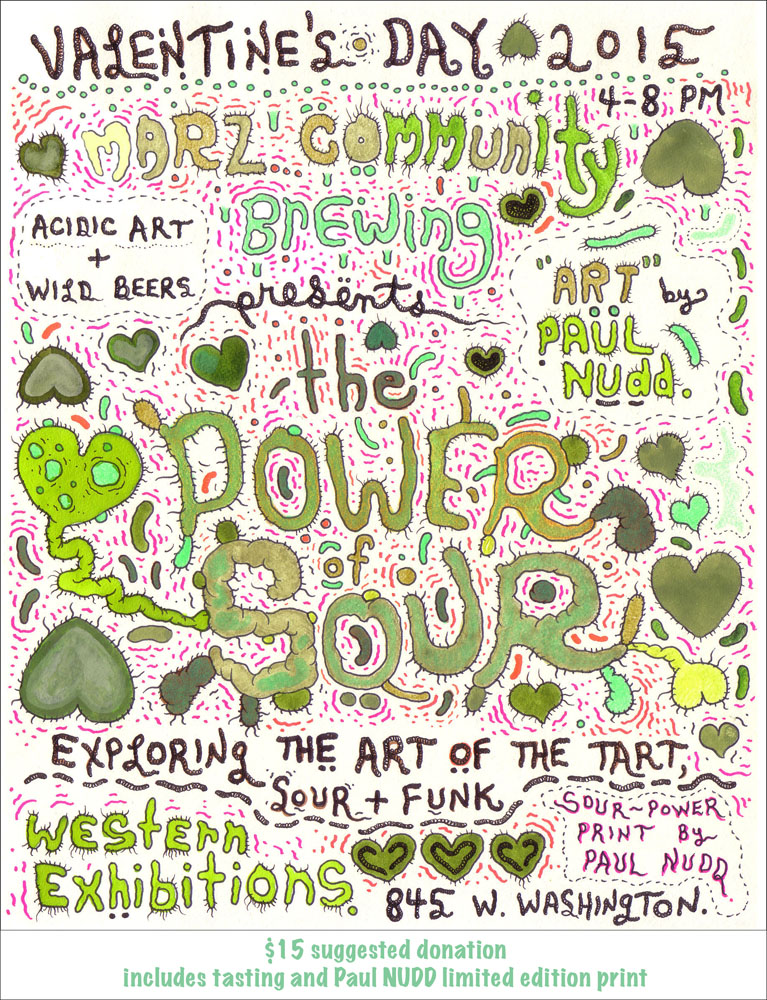 VALENTINE'S DAY 2015
4-8 PM
MARZ COMMUNITY
BREWING
ACIDIC ART
+
WILD BEERS
presents
"ART" by
PAÜL
NUdd.
the
POWER
of
SOUR
EXPLORING THE ART OF THE TART,
SOUR + FUNK
WESTERN
EXHIBITIONS.
SOUR-POWER
PRINT BY
PAUL NUDD
845 W. WASHINGTON.
$15 suggested donation
includes tasting and Paul NUDD limited edition print